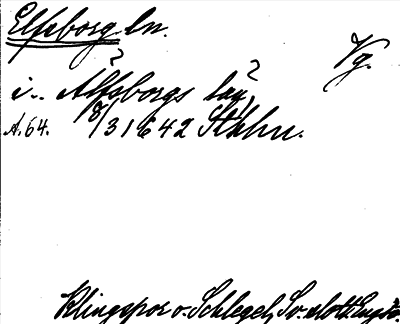 Elfsborg ln.
Vg.
i.. Älfsborgs län,
A. 64. 8/3 1642 Sthlm.
Klingspor o. Schlegel, Sv. slott